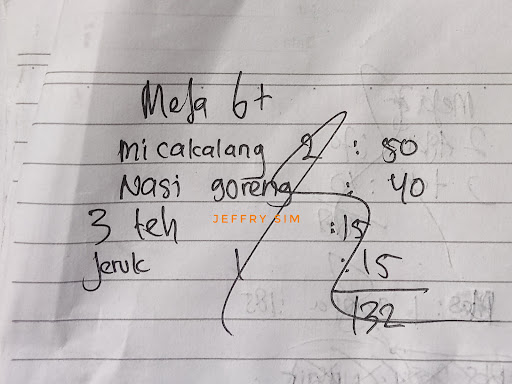 Meja 6+
mi cakalang 2 : 80
Nasi goreng : 40
JEFFRY SIM
3 teh : 15
Jeruk 1 : 15
132